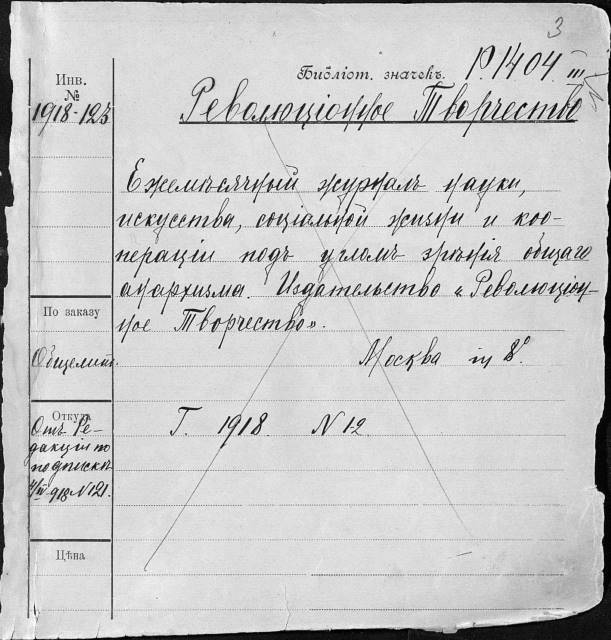 3
Библіот. значекъ. Р.1404 III
Инв.
№
1918-123
Революціонное Творчество
Ежемѣсячный журналъ науки,
искусства, соціальной жизни и коо-
пераціи подъ угломъ зрѣнія общаго
анархизма. Издательство «Революціон-
ное Творчество».
Москва in 8º
Г. 1918. N 1-2
По заказу
Общелит.
Откуда
Отъ Ре-
дакціи по
подпискѣ
918 N 121.
Цѣна